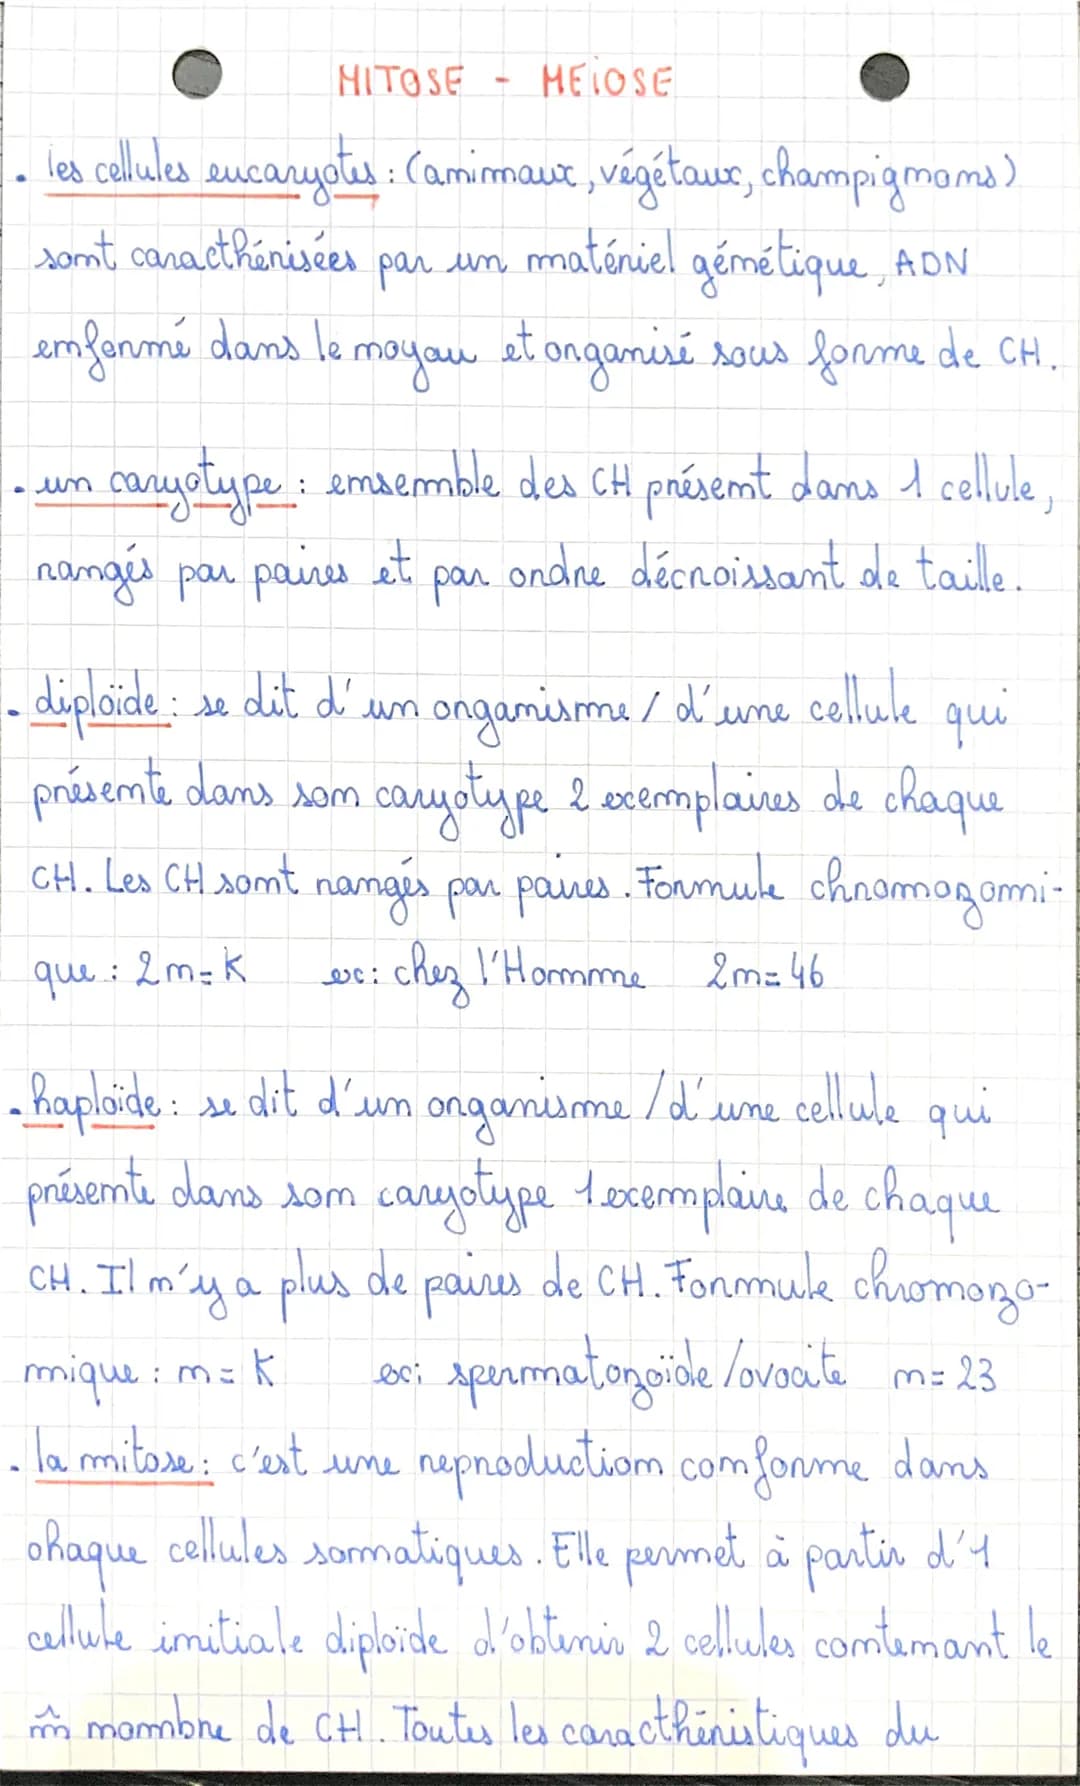 MITOSE - MEÏOSE
. les cellules eucaryotes : (animaux, végétaux, champignons)
sont caracthérisées par un matériel génétique, ADN
enfermé dans le noyau et organisé sous forme de CH.
. un caryotype : ensemble des CH présent dans 1 cellule,
rangés par paires et par ordre décroissant de taille.
. diploïde : se dit d'un organisme / d'une cellule qui
présente dans son caryotype 2 exemplaires de chaque
CH. Les CH sont rangés par paires. Formule chromozomi-
que : 2n = K ex : chez l'Homme 2n = 46
. haploïde : se dit d'un organisme / d'une cellule qui
présente dans son caryotype 1 exemplaire de chaque
CH. Il n'y a plus de paires de CH. Formule chromozo-
mique : n = K ex : spermatozoïde / ovocite n = 23
. la mitose : c'est une reproduction conforme dans
chaque cellules somatiques. Elle permet à partir d'1
cellule initiale diploïde d'obtenir 2 cellules contenant le
m̂ nombre de CH. Toutes les caracthéristiques du